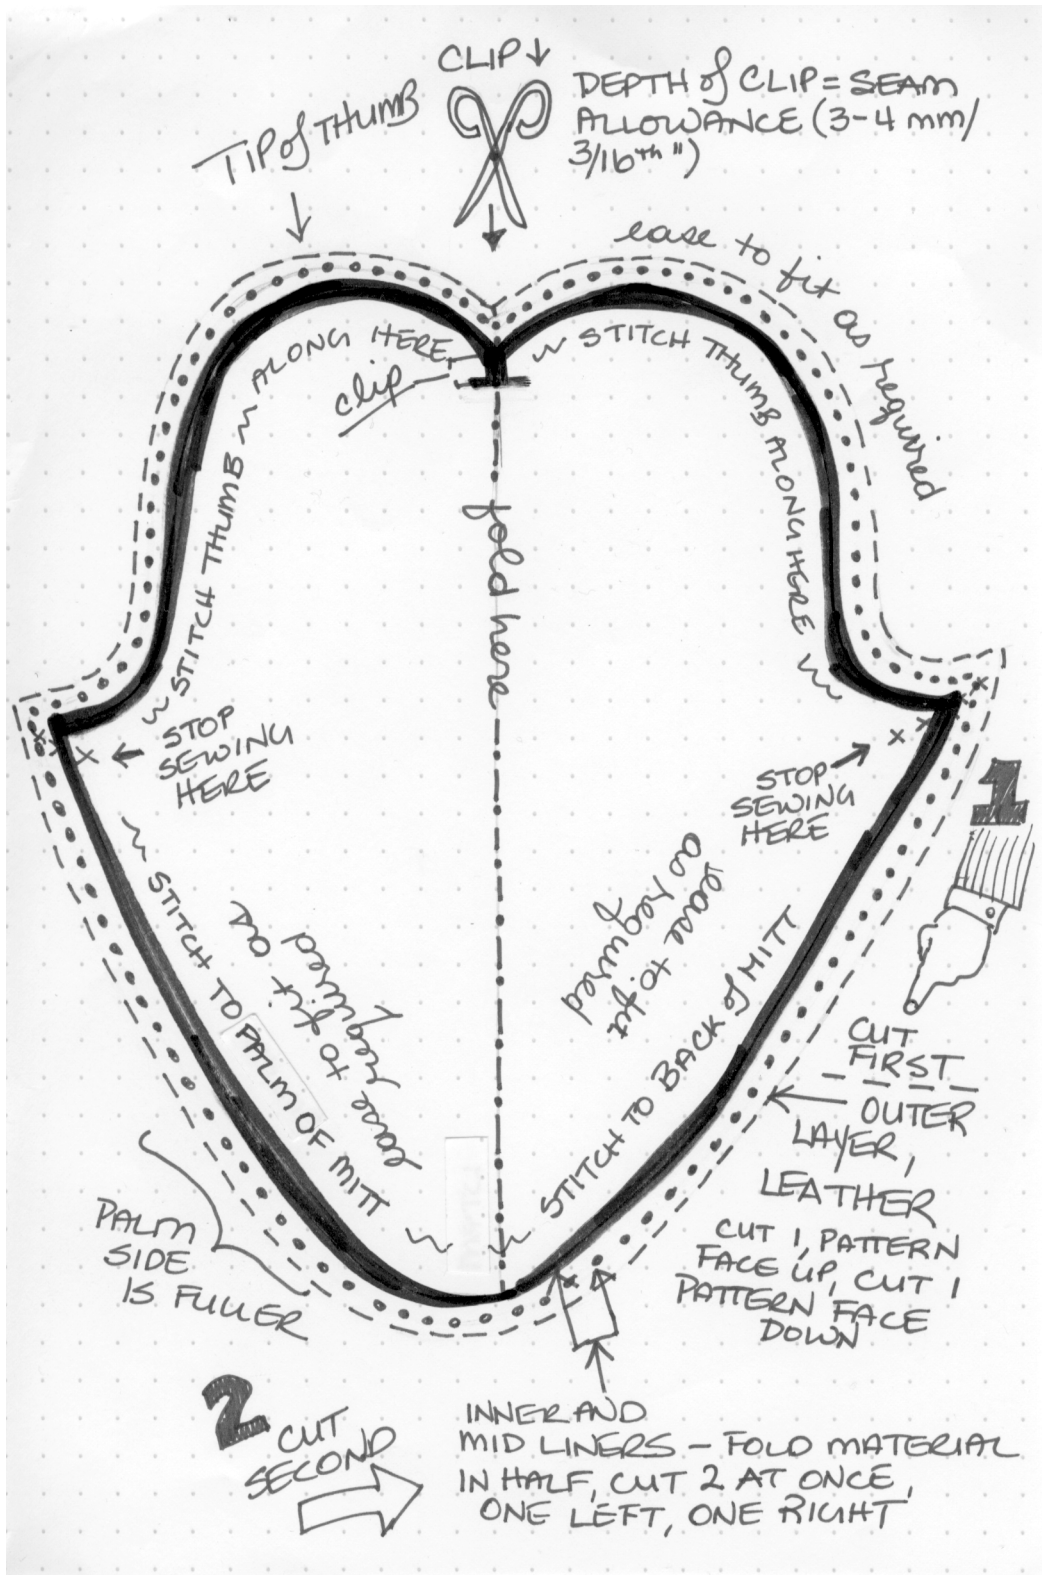 CLIP ↓
DEPTH of CLIP = SEAM
ALLOWANCE (3-4 mm/
3/16th ")
TIP of THUMB
ease to fit as required
~ STITCH THUMB ~ ALONG HERE
clip
~ STITCH THUMB ALONG HERE ~
fold here
STOP
SEWING
HERE
STOP
SEWING
HERE
1
~ STITCH TO PALM OF MITT ~
ease to fit as
required
ease to fit
as required
~ STITCH TO BACK of MITT
CUT
FIRST
OUTER
LAYER,
LEATHER
CUT 1, PATTERN
FACE UP, CUT 1
PATTERN FACE
DOWN
PALM
SIDE
IS FULLER
2
CUT
SECOND
INNER AND
MID LINERS – FOLD MATERIAL
IN HALF, CUT 2 AT ONCE,
ONE LEFT, ONE RIGHT